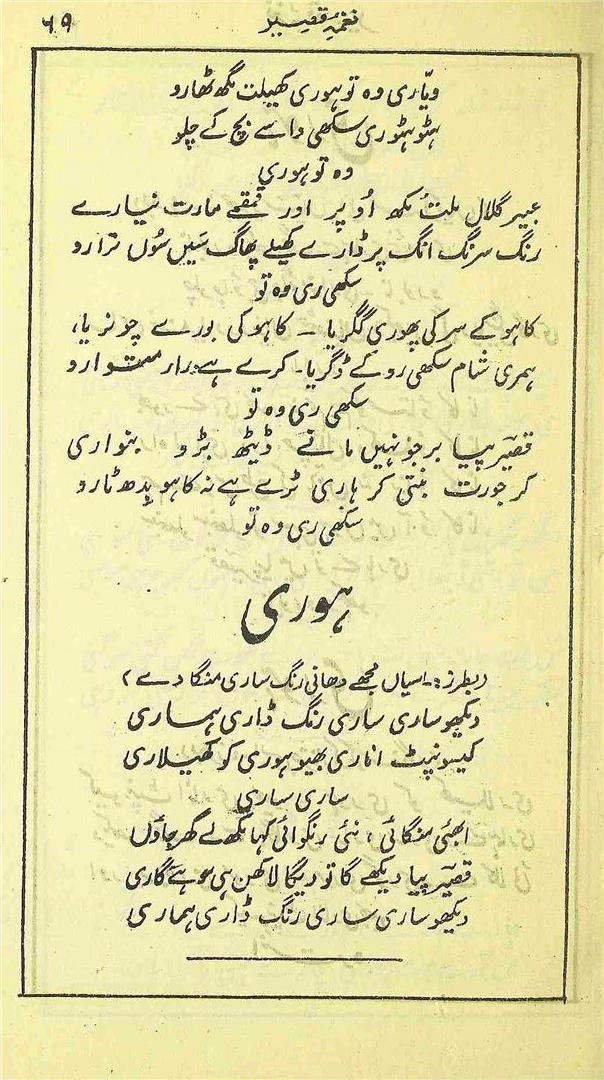 نغمۂ قیصر
۶۹
ویّاری وہ تو ہوری کھیلت مگھ ٹھارو
ہٹو ہٹو ری سکھی واسے بچ کے چلو
وہ تو ہوری
عبیر گلال ملت مُکھ اُوپر اور قمقمے مارت نیارے
رنگ سرنگ انگ پر ڈارے کھیلے پھاگ سَیں سُوں نرارو
سکھی ری وہ تو
کاہو کے سر کی پھوری گگریا ۔ کاہو کی بورے چونریا،
ہمری شام سکھی روکے ڈگریا۔ کرے ہے رار متوارو
سکھی ری وہ تو
قصیرؔ پیا برجو نہیں مانے ڈیٹھ بڑو بنواری
کر جورت بنتی کر ہاری ٹرے ہے نہ کاہو بِدھ ٹارو
سکھی ری وہ تو
ہوری
(بطرز:۔ سیاں مجھے دھانی رنگ ساری منگا دے)
دیکھو ساری ساری رنگ ڈاری ہماری
کیسو نپٹ اناری بھیو ہوری کو کھیلاری
ساری ساری
ابھئی منگائی، نئی رنگوائی کہا مکھ لے گھر جاؤں
قصیرؔ پیا دیکھے گا تو دیگا لاکھن ہی موہے گاری
دیکھو ساری ساری رنگ ڈاری ہماری